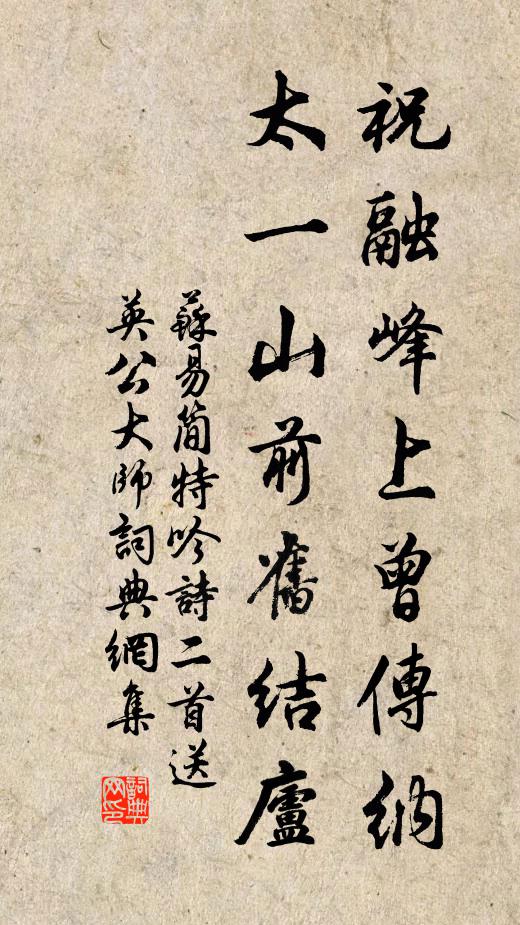 祝融峰上曾傳納
太一山前舊結廬
蘇易簡特吟詩二首送
英公大師詞典網集
詞典
网印